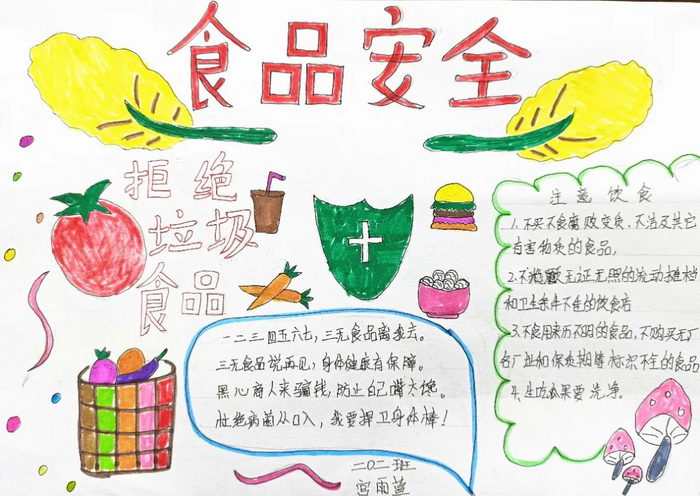 食品安全
拒绝
垃圾
食品
注意饮食
1.不买不食腐败变质、不洁及其它
有害物质的食品。
2.不光顾无证无照的流动摊档
和卫生条件不佳的饮食店
3.不食用来历不明的食品,不购买无厂
名厂址和保质期等标识不全的食品
4.生吃瓜果要洗净。
一二三四五六七,三无食品离我去。
三无食品说再见,身体健康有保障。
黑心商人来骗钱,防止自己嘴太馋。
杜绝病菌从口入,我要捍卫身体棒!
二〇二班
宫雨萱